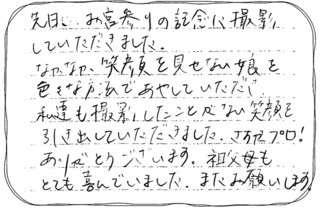 先日、お宮参りの記念に撮影
していただきました。
なかなか笑顔を見せない娘を
色々な方法であやしていただき
私達も撮影したことがない笑顔を
引き出していただきました。さすがプロ!
ありがとうございます。祖父母も
とても喜んでいました。またお願いします。